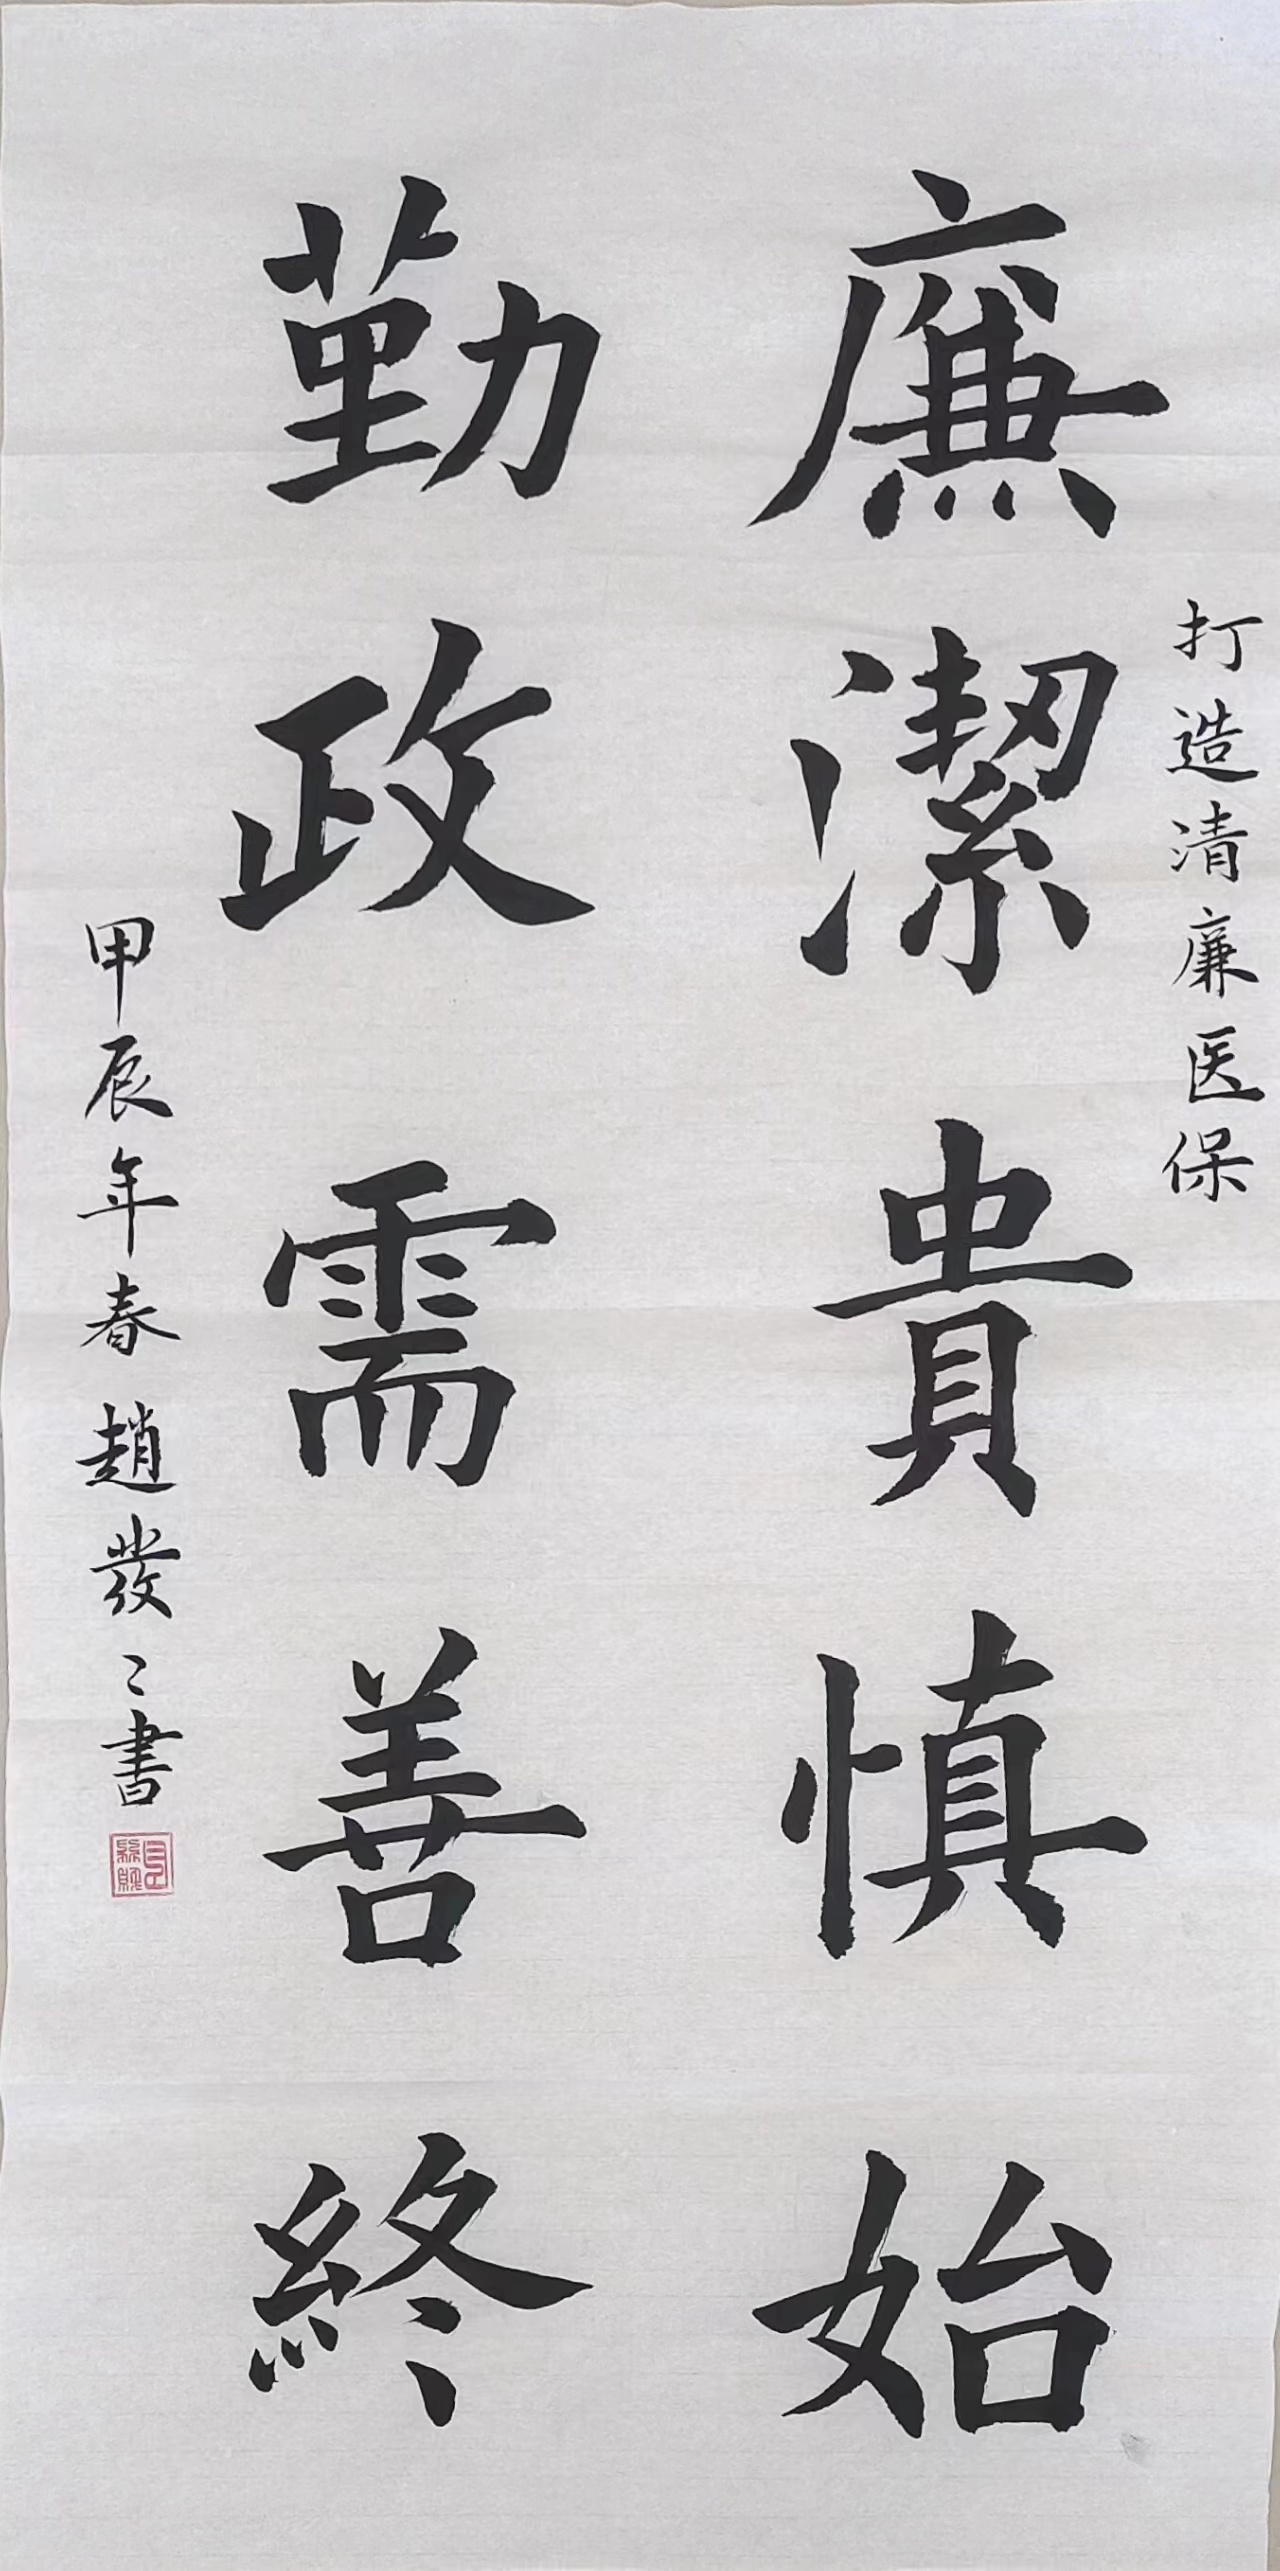 打造清廉医保
廉潔貴慎始
勤政需善終
甲辰年春趙發〻書